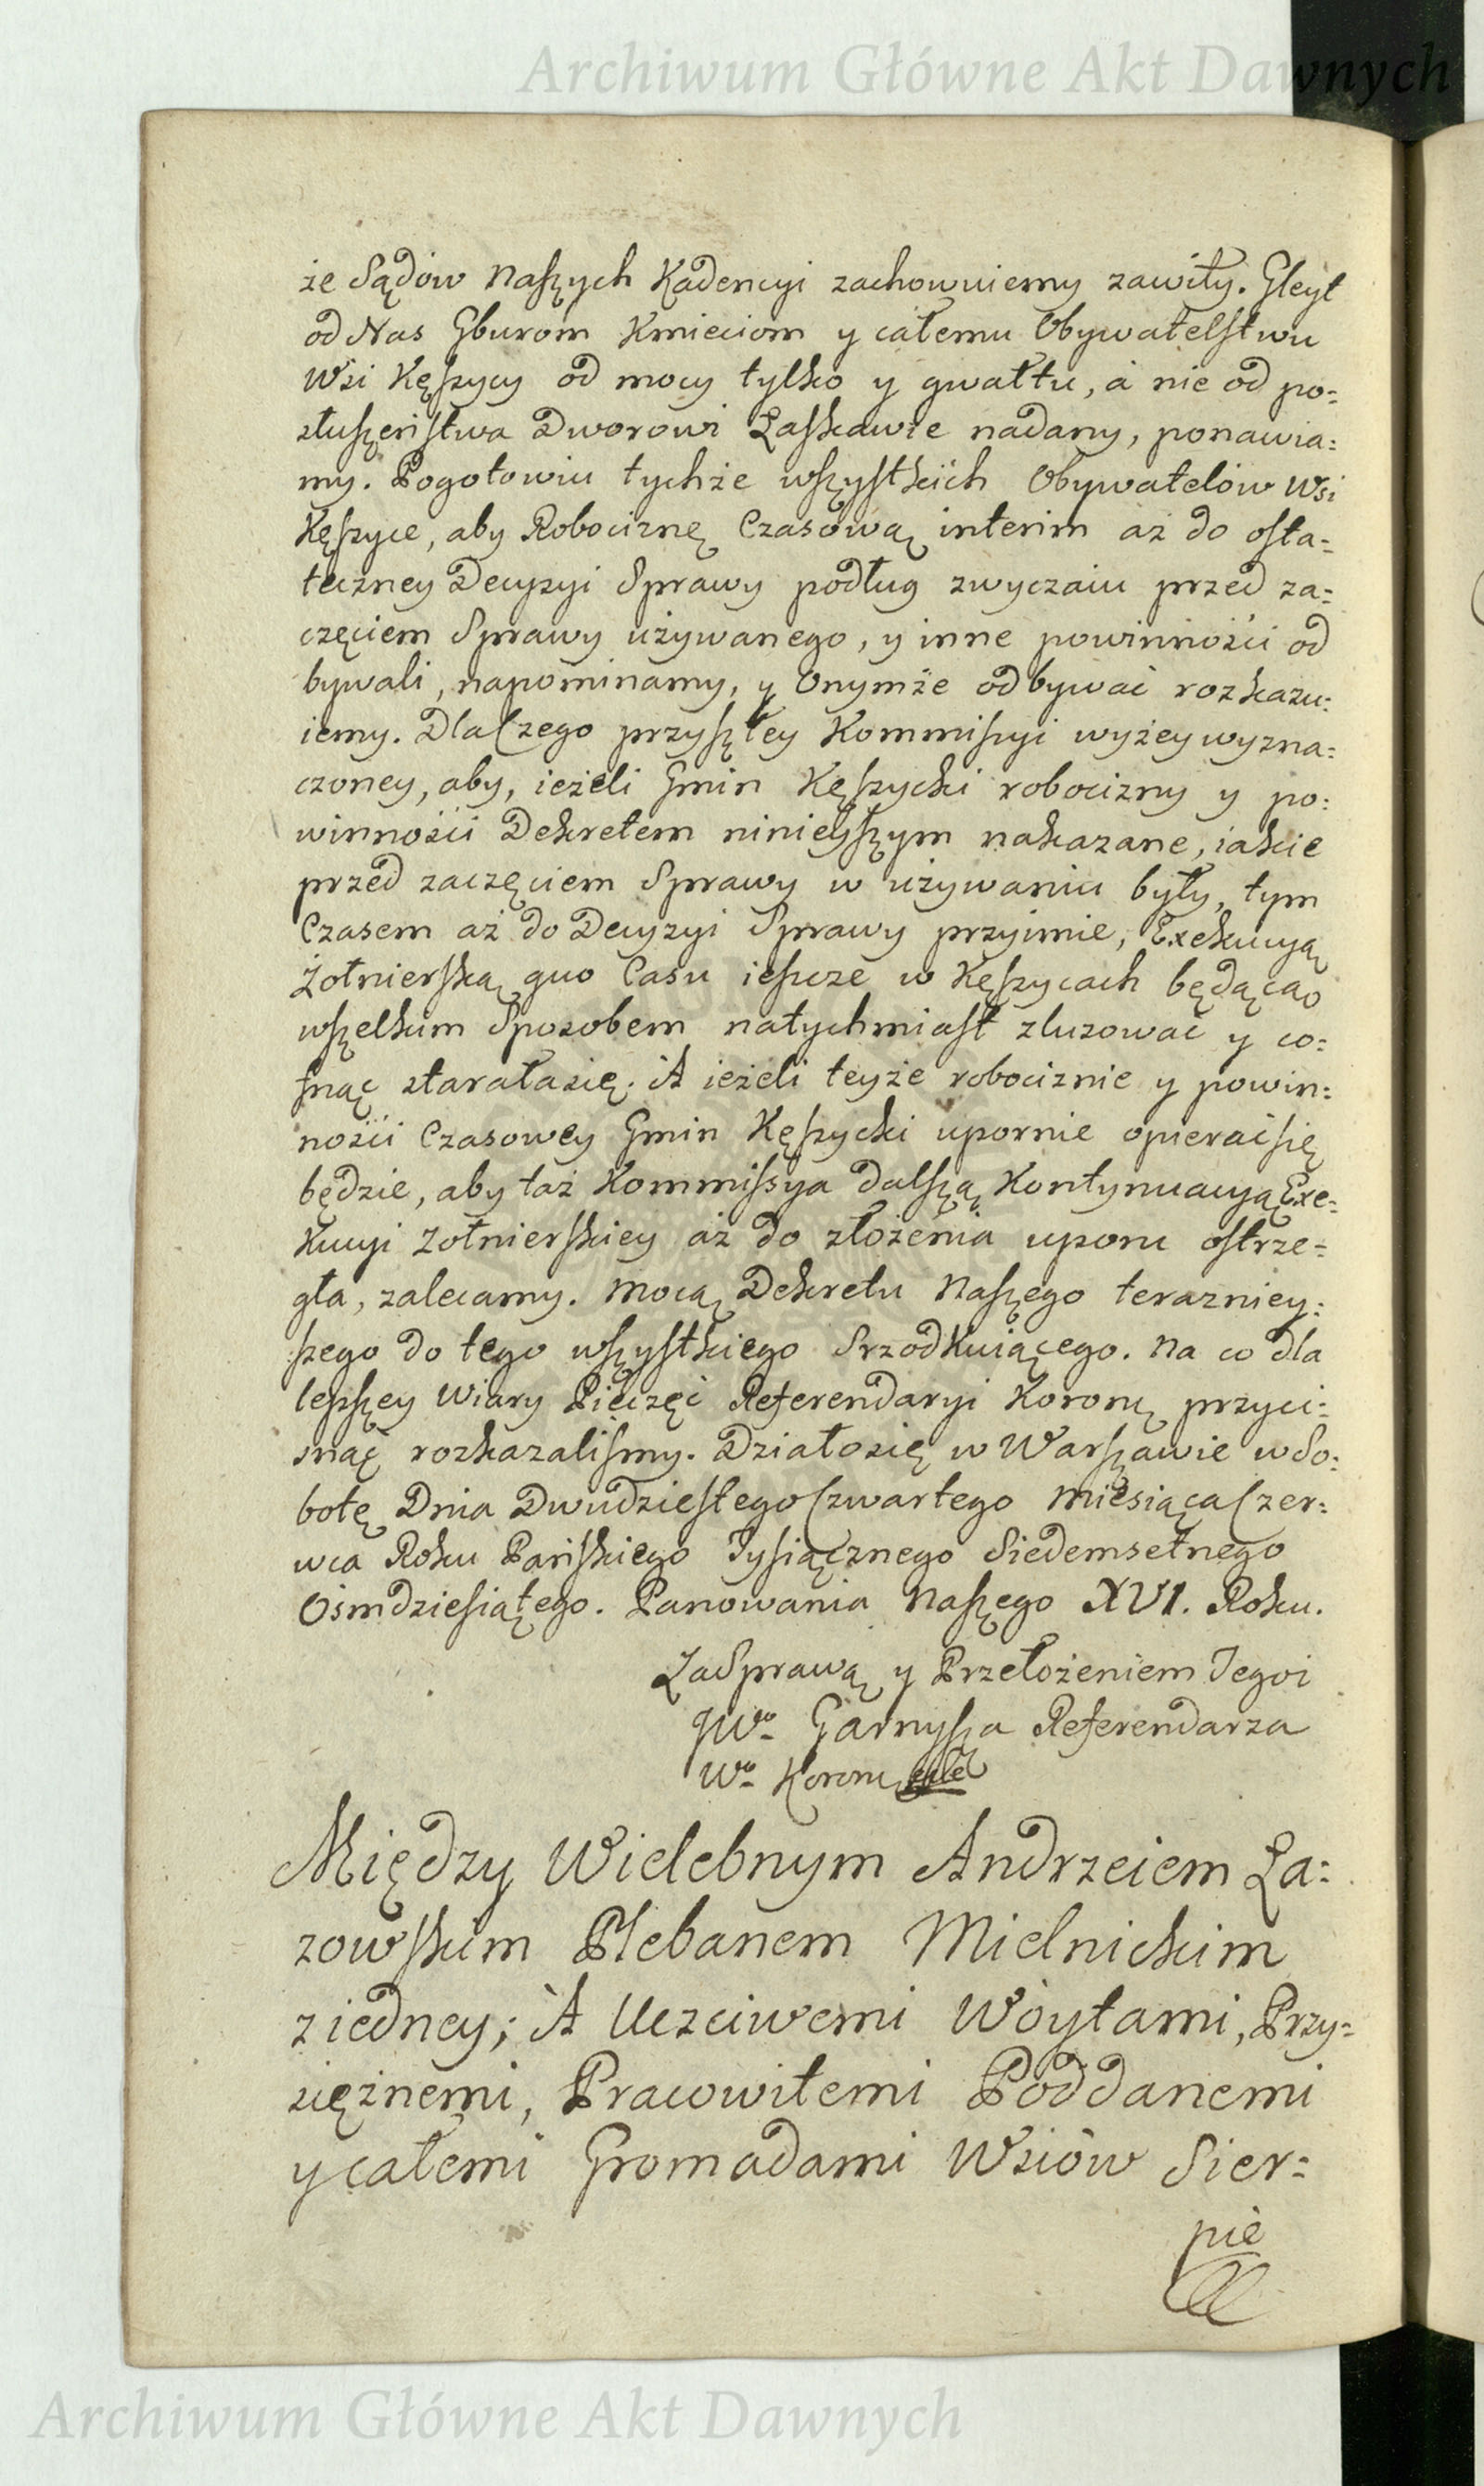 Archiwum Główne Akt Dawnych
że Sądow Naszych Kadencyi zachowuiemy zawiły. Gleyt
od Nas Gburom Kmieciom y całemu Obywatelstwu
Wsi Kęszycy od mocy tylko y gwałtu, a nie od po=
słuszeństwa Dworowi Łaskawie nadany, ponawia=
my. Pogotowiu tychże wszystkich Obywatelow Wsi
Kęszyce, aby Robociznę Czasową interim aż do osta=
teczney Decyzyi Sprawy podług zwyczaiu przed za=
częciem Sprawy używanego, y inne powinności od
bywali, napominamy, y Onymże odbywać rozkazu=
iemy. Dla Czego przyszłey Kommissyi wyżey wyzna=
czoney, aby, ieżeli Gmin Kęszycki robocizny y po=
winności Dekretem ninieyszym nakazane, iakie
przed zaczęciem Sprawy w używaniu były, tym
Czasem aż do Decyzyi Sprawy przyimie, Exekucyą
Żołnierską quo Casu ieszcze w Kęszycach będącą
wszelkim Sposobem natychmiast zluzować y co=
fnąć starała się. A ieżeli teyże robociznie y powin=
ności Czasowey Gmin Kęszycki upornie opierać się
będzie, aby taż Kommissya dalszą Kontynuacyą Exe=
kucyi Zołnierskiey aż do złożenia uporu ostrze=
gła, zalecamy. Mocą Dekretu Naszego terazniey=
szego do tego wszystkiego Srzodkuiącego. Na co dla
lepszey Wiary Pieczęć Referendaryi Koronę przyci=
snąć rozkazalismy. Działo się w Warszawie w So=
botę Dnia Dwudziestego Czwartego Miesiąca Czer=
wca Roku Pańskiego Tysiącznego Siedemsetnego
Osmdziesiątego. Panowania Naszego XVI. Roku.
Za Sprawą y Przełożeniem Tegoż
JWo Garnysza Referendarza
Wo Koronę
Między Wielebnym Andrzeiem Ła=
zowskim Plebanem Mielnickim
z iedney; A Uczciwemi Woytami, Przy=
siężnemi, Pracowitemi Poddanemi
y całemi Gromadami Wsiow Sier=
pie
Archiwum Główne Akt Dawnych